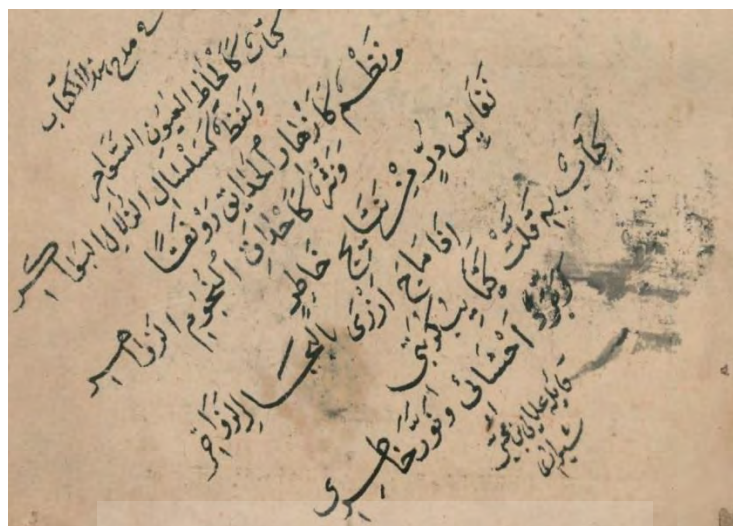 في مدح هذا الكتاب
كِتاب كَألحَاظِ العيُون السَّوَاحر
وَلَفظ كسَلسَال الزلال البَواكر
ونَظم كَأزهَار الحَدايق رَونقًا
وَنثر كَأحدَاق النُجُوم الزوَاهر
نَفايسُ دُرٍّ من نتَايج خَاطِرٍ
اذَا مَاجَ ازرَى بِالبحَار الزوَاخر
كِتاب بهِ فَلَّت كتَايبُ كُربَتي
وبرّد احشَائي ونَوَّر خَاطِري
قايله علي بن